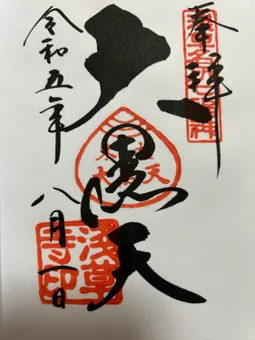 奉拝
大黒天
令和五年
八月一日
浅草
寺印